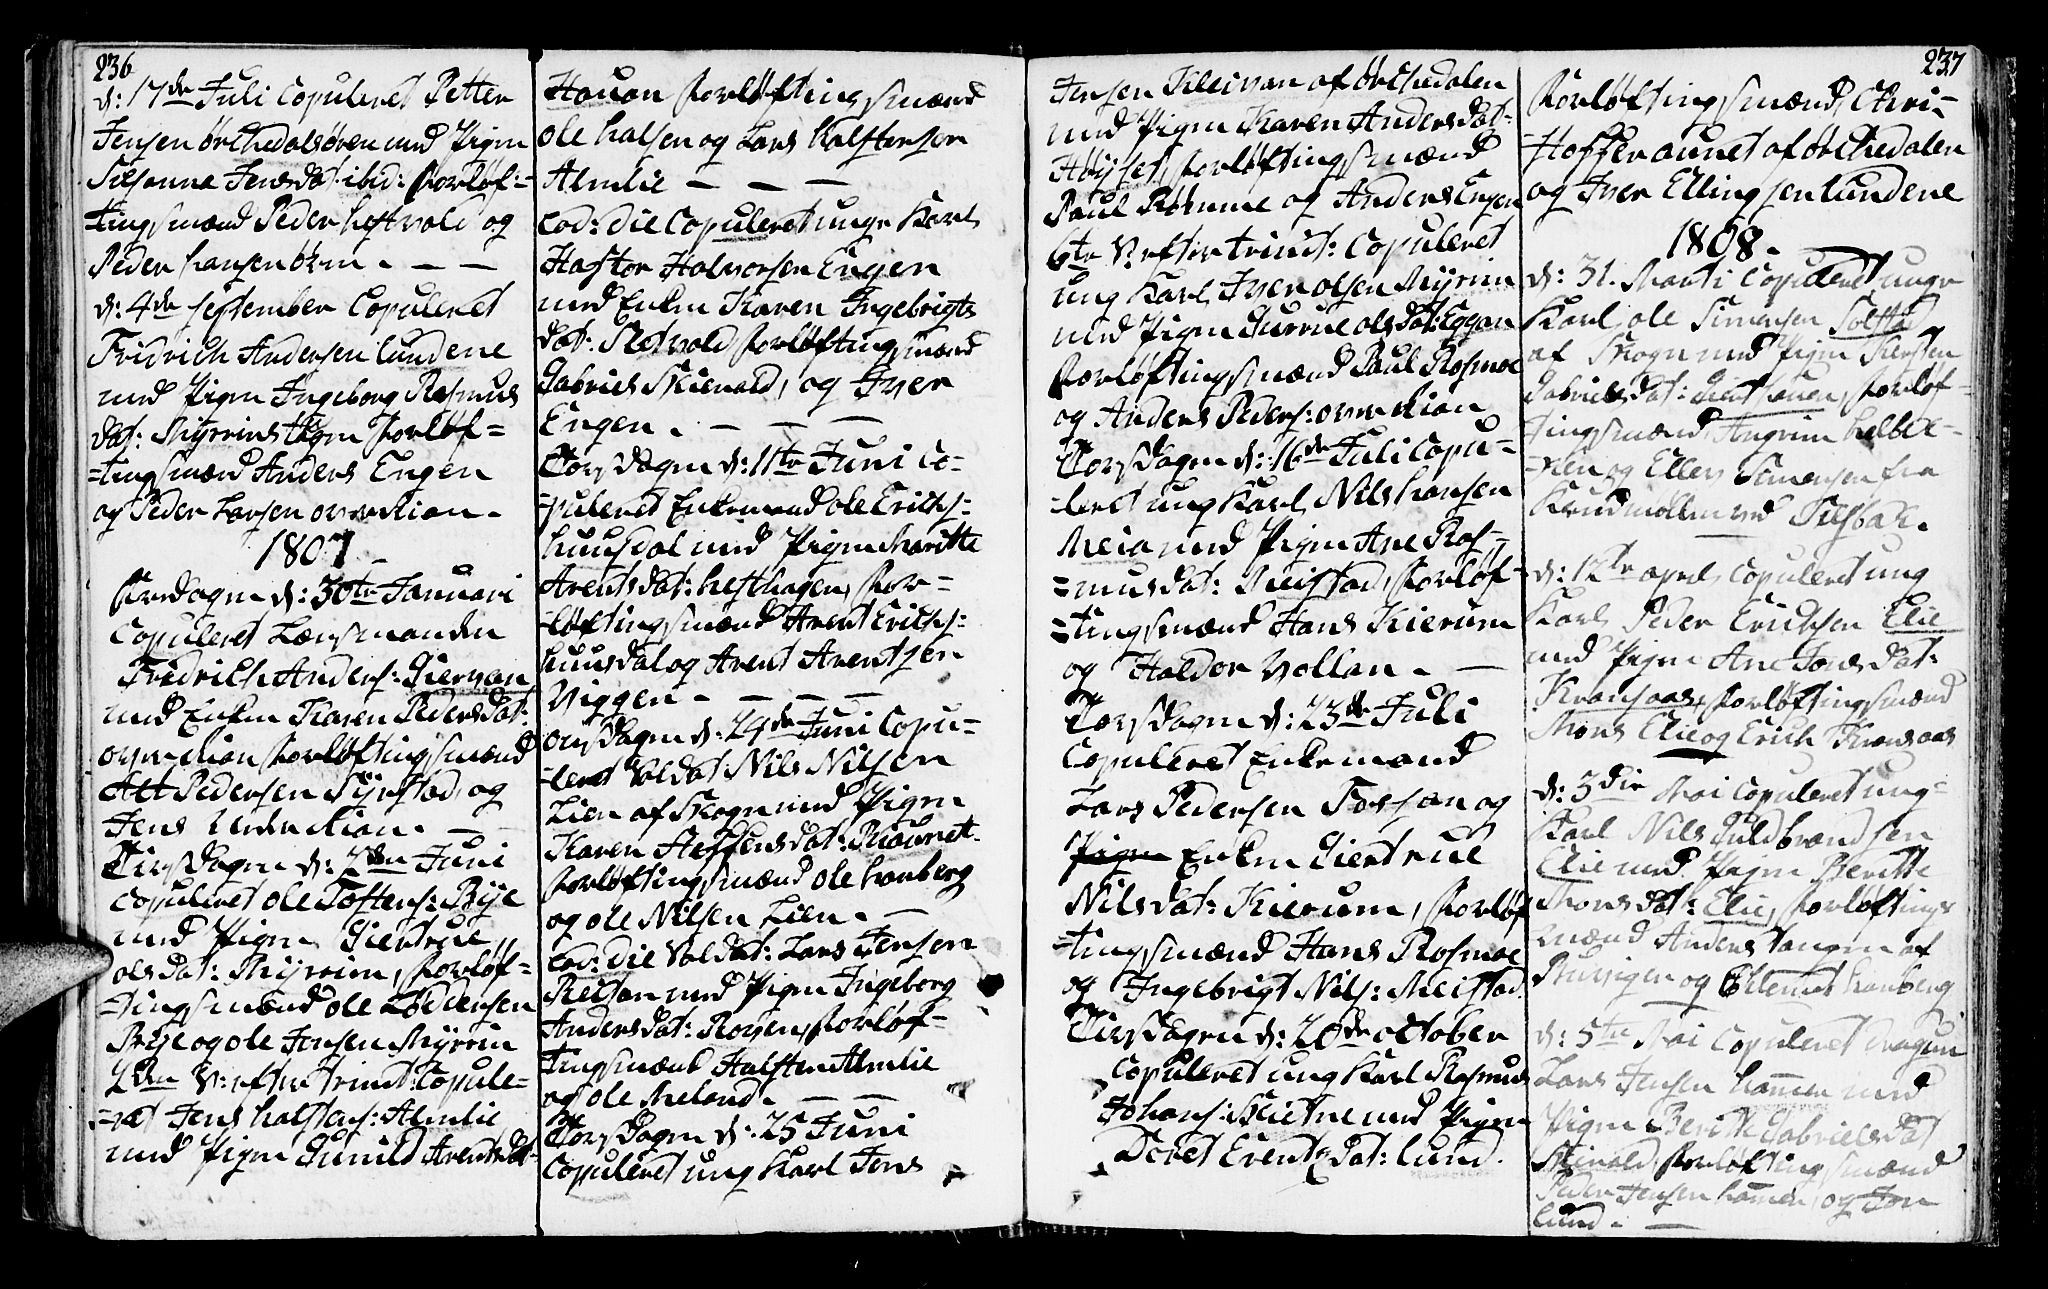 236
d: 17de Juli Copuleret Petter
Jensen Ørchedalsøren med Pigen
Susanna Jensdat: ibid: Forløf-
tingsmænd Peder heftvold og
Peder hansen Øren. — —
d: 4de September Copuleret
Fridrich Andersen lundene
med Pigen Ingeborg Rasmus
dat: Myrrins Forløf=
=tingsmænd Anders Engen
og Peder Larsen
1807
Fredagen d: 30te Januari
Copuleret Lænsmanden
Fridrich Anders: Giervan
med Enken Karen Pedersdat:
Forløftingsmænd
Pedersen Syrstad, og
Jens — —
Tirsdagen d: 2den Juni
Copuleret ole Toftens: Rye
med Pigen Giertrue
olsdat: Myrrin, Forløf=
=tingsmænd ole Pedersen
Rye og ole Jensen Myrrin
2den S: efter Trinit: Copule=
=ret Jens halstens: Almlie
med Pigen Gunild Arentsdat
Houan Forløftingsmænd
ole halsen og Lars halstensen
Almlie — — —
Eod: die Copuleret unge Karl
Hastor Halvorsen Engen
med Enken Karen Ingebrigts
dat: Forløftingsmænd
Gabriel Skienald, og Iver
Engen. — — —
Torsdagen d: 11te Juni Co-
-puleret Enkemand ole Erichs:
huusdal med Pigen Maritte
Arentsdat: hefthagen, For=
-løftingsmænd Arent Erichs:
huusdal og Arent Arentsen
Viggen — — — —
Onsdagen d: 24de Juni Copu=
-leret Soldat Nils Nilsen
Lien af Skogn med Pigen
Karen Steffensdat: Raaunet.
Forløftingsmænd ole hanberg
og ole Nilsen Lien. —
Eod: die Soldat: Lars Jensen
Reitan med Pigen Ingeborg
Andersdat: Roven, Forløf=
tingsmænd Halsten Almlie
og ole Meland. — —
Torsdagen d: 25 Juni
Copuleret ung Karl Jens
237
Jensen Kleivan af Ørchedalen
med Pigen Karen Andersdat:
Høyset, Forløftingsmænd
Paul Rømme og Anders Engen
6te S: efter trinit: Copuleret
ung Karl Iver olsen Myrrin
med Pigen Gurrue olsdat: Eggan
Forløftingsmænd Paul Rosmoe
og Anders Peders:
Torsdagen d: 16de Juli Copu=
-leret ung Karl Nils hansen
Meia med Pigen Ane Ras=
=musdat: Meistad, Forløf=
=tingsmænd Hans Kierum
og Haldor Vollan. —
Torsdagen d: 23de Juli
Copuleret Enkemand
Lars Pedersen Fossan og
Pigen Enken Giertrue
Nilsdat: Kierum, Forløf
=tingsmænd Hans Rosmoe
og Ingebrigt Nils: Meistad.
Tirsdagen d: 20de october
Copuleret ung Karl Rasmus
Johans: Skietne med Pigen
Doret Erentsdat: Lund.
Forløftingsmænd, Chri=
=stoffer aunet af Ørchedalen
og Iver Ellingsen lundene
1808.
d: 31. Marti Copuleret unge
Karl ole Simonsen Solstad
af Skogn med Pigen Kiersten
Gabrielsdat: Forløf-
tingsmænd, Angrim
og Ellers Simonsen fra
d: 12te april, Copuleret ung
Karl Peder Erichsen Elie
med Pigen Ane Jonsdat:
Kraasaas, Forløftingsmænd
Mons Elie og Erich Kraasaas
d: 3die Mai Copuleret ung=
Karl Nils Guldbrandsen
Elie med Pigen Beritte
Monsdat: Elie, Forløftings
mænd Anders Vangen af
og hanberg
d: 5te Mai Copuleret Dragun
Lars Jensen hammer med
Pigen Beritte Gabrielsdat
Skinald, Forløftingsmænd
Peder Jensen hammer, og Jon
lund. —